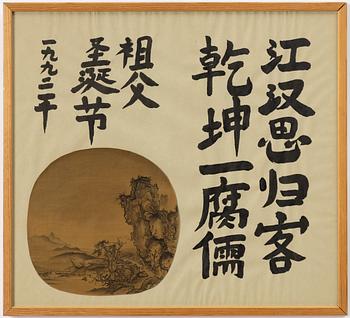 江汉思归客
乾坤一腐儒
祖父
圣诞节
一九九二年